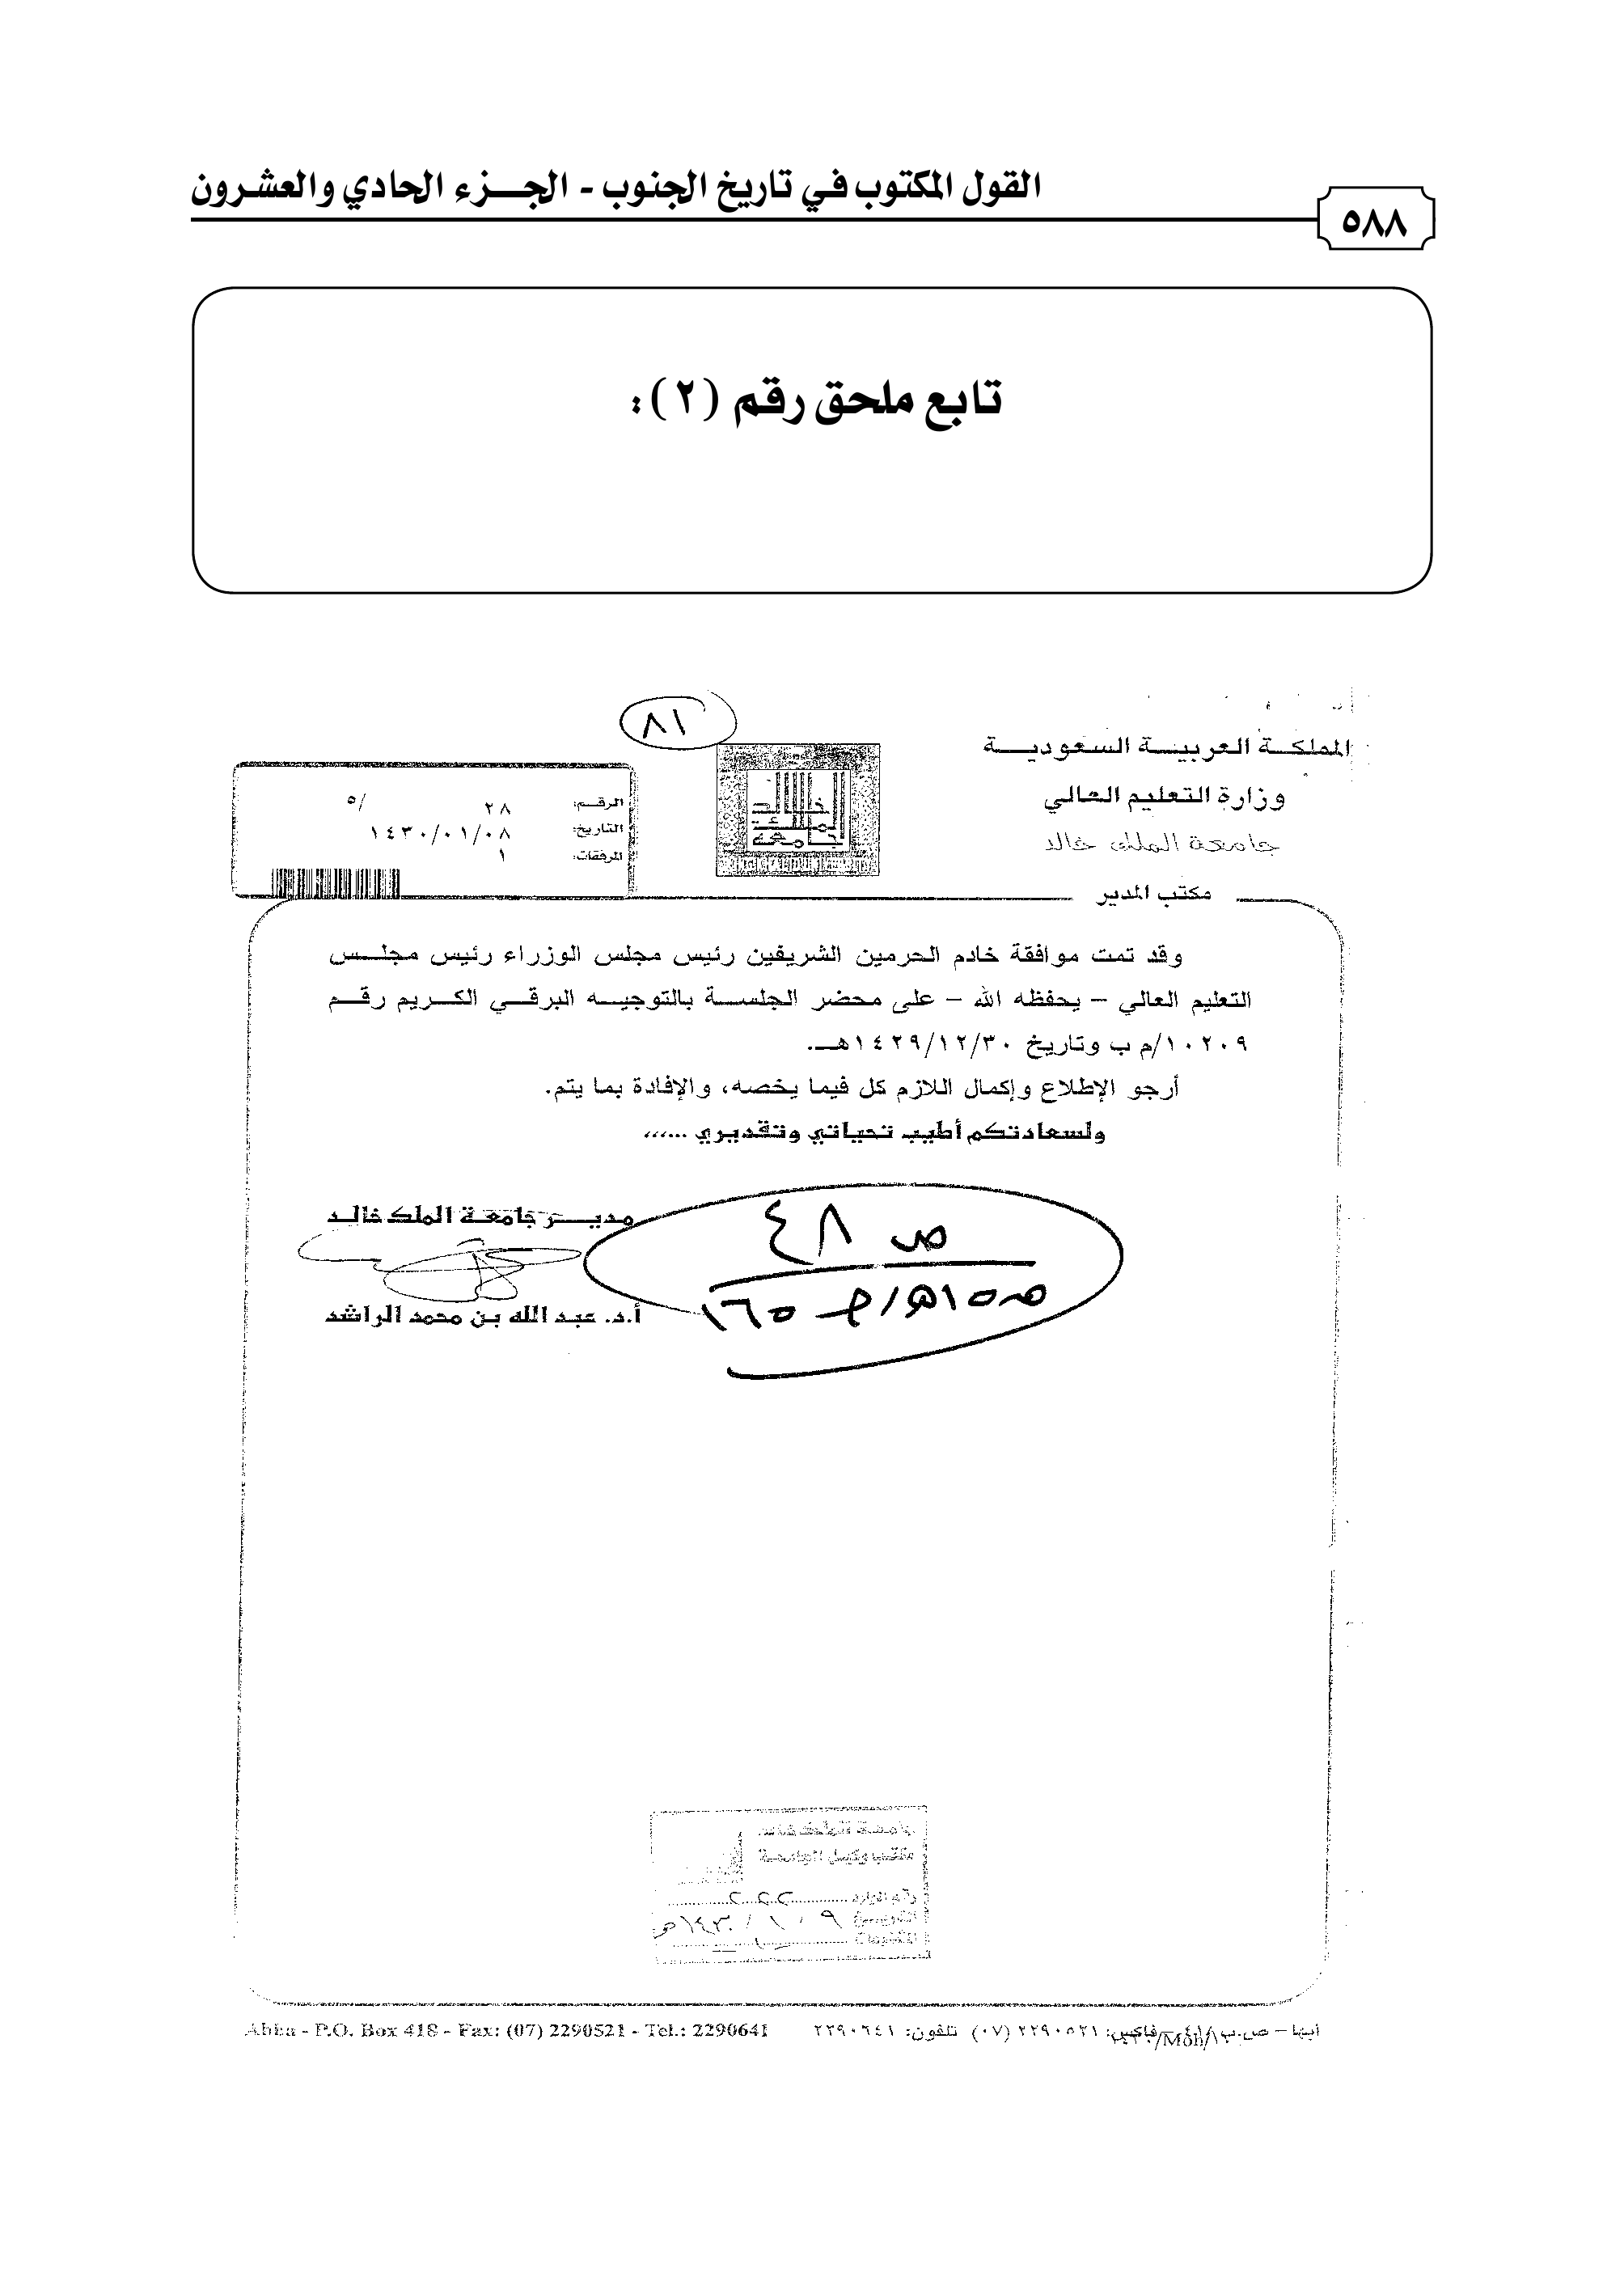 القول المكتوب في تاريخ الجنوب - الجـــزء الحادي والعشرون
٥٨٨
تابع ملحق رقم (٢):
٨١
المملكة العربية السعودية
وزارة التعليم العالي
جامعة الملك خالد
مكتب المدير
خالد
الملك
جامعة
الرقم: ٢٨ /٥
التاريخ: ١٤٣٠/٠١/٠٨
المرفقات: ١
وقد تمت موافقة خادم الحرمين الشريفين رئيس مجلس الوزراء رئيس مجلس
التعليم العالي – يحفظه الله – على محضر الجلسة بالتوجيه البرقي الكريم رقم
١٠٢٠٩/م ب وتاريخ ١٤٢٩/١٢/٣٠هـ.
أرجو الإطلاع وإكمال اللازم كل فيما يخصه، والإفادة بما يتم.
ولسعادتكم أطيب تحياتي وتقديري ...،،،
مديـــر جامعة الملك خالد
ص ٤٨
أ.د. عبد الله بن محمد الراشد
جامعة الملك خالد
مكتب وكيل الجامعة
رقم الوارد
التاريخ ٩ / ١ / ١٤٣٠هـ
المرفقات
Abha - P.O. Box 418 - Fax: (07) 2290521 - Tel.: 2290641
أبها – ص.ب فاكس: ٢٢٩٠٥٢١ (٠٧) تلفون: ٢٢٩٠٦٤١